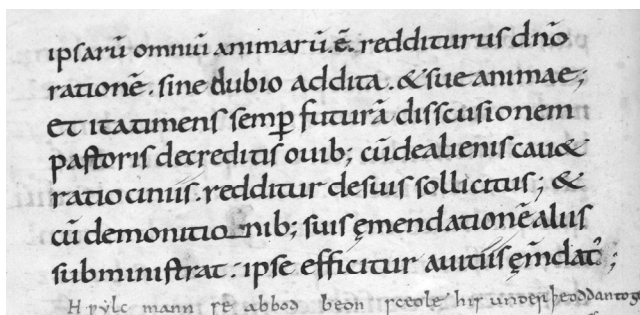 ipsarū omniū animarū. ē. redditurus dn̄o
rationē. sine dubio addita. & sue animae;
et ita timens semꝑ futurā disscusionem
pastoris de creditis ouib; cū de alienis cau&
ratiociniis. redditur de suis sollicitus; &
cū de monitionib; suis ęmendationē aliis
subministrat. ipse efficitur a uitiis ęm̄dat᾽;
Hƿẏlc mann se abbod beon sceole his underþeoddan to ge